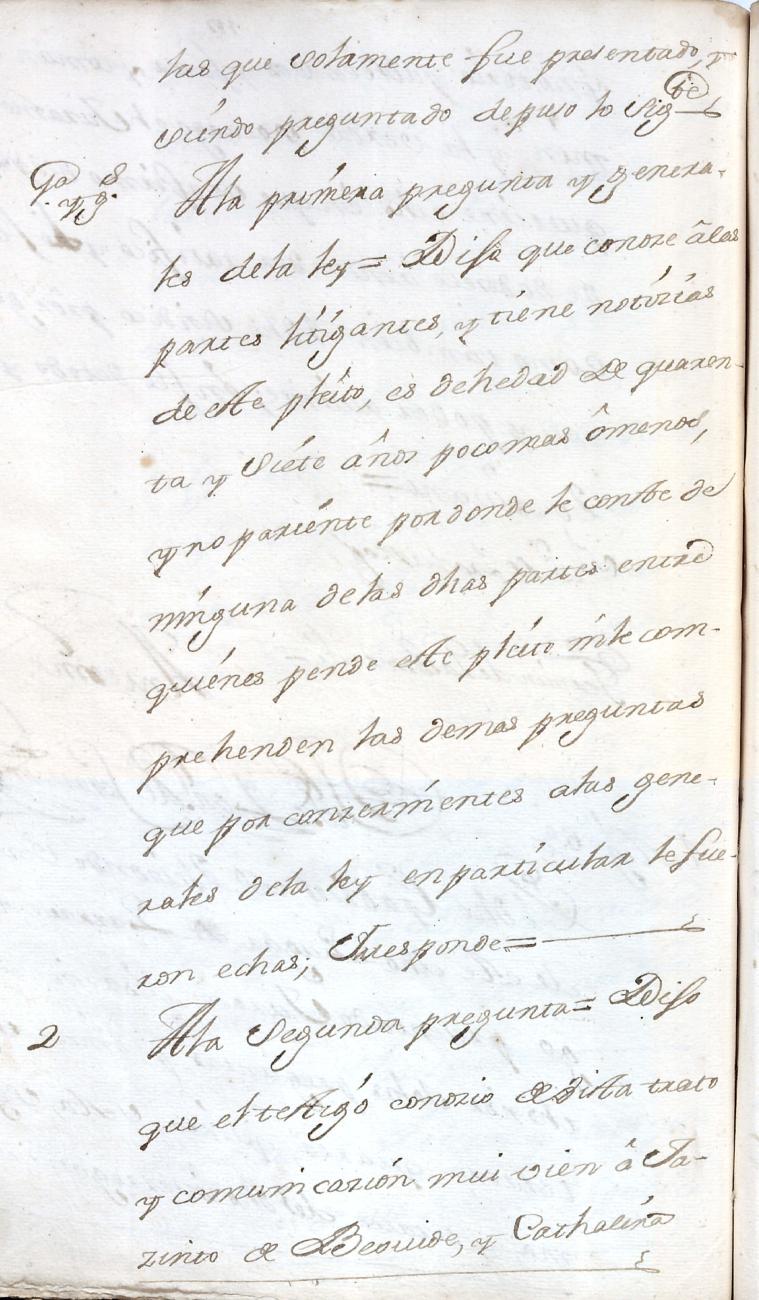 las que solamente fue presentado, y
siendo preguntado depuso lo sig.te
1a y g.s
A la primera pregunta y genera-
les de la ley = Dijo que conoze â las
partes litigantes, y tiene notizias
de este pleito, es de hedad de quaren-
ta y siete años poco mas ô menos,
y no pariente por donde le conste de
ninguna de las dhas partes entre
quienes pende este pleito ni le com-
prehenden las demas preguntas
que por conzernientes a las gene-
rales de la ley en particular le fue-
ron echas; Y responde =
2
A la segunda pregunta = Dijo
que el testigo conozio de vista trato
y comunicazión mui vien â Ja-
zinto de Beouide, y Cathalina